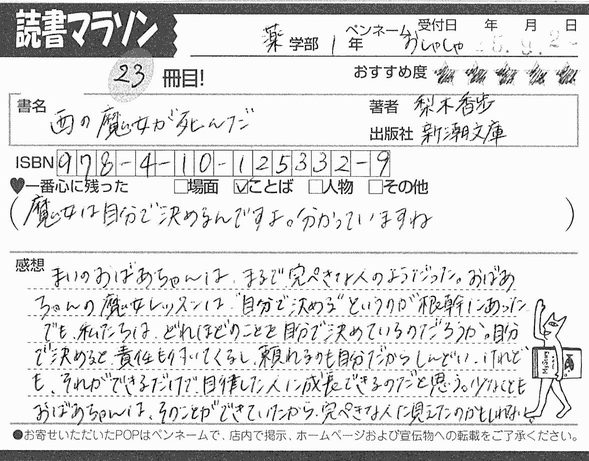 読書マラソン
薬 学部 1 年 ペンネーム おしゃしゃ 受付日 年 月 日
23 冊目! おすすめ度
書名 西の魔女が死んだ 著者 梨木香歩
出版社 新潮文庫
ISBN 978-4-10-125332-9
♥一番心に残った □場面 ☑ことば □人物 □その他
(魔女は自分で決めるんですよ。分かっていますね)
感想 まいのおばあちゃんは、まるで完ぺきな人のようだった。おばあ
ちゃんの魔女レッスンは"自分で決める"というのが根幹にあった
でも、私たちは、どれほどのことを自分で決めているのだろうか。自分
で決めると責任も付いてくるし、頼れるのも自分だからしんどい。けれど
も、それができるだけで自律した人に成長できるのだと思う。少なくとも
おばあちゃんは、そのことができていたから、完ぺきな人に見えたのかもしれない。
●お寄せいただいたPOPはペンネームで、店内で掲示、ホームページおよび宣伝物への転載をご了承ください。